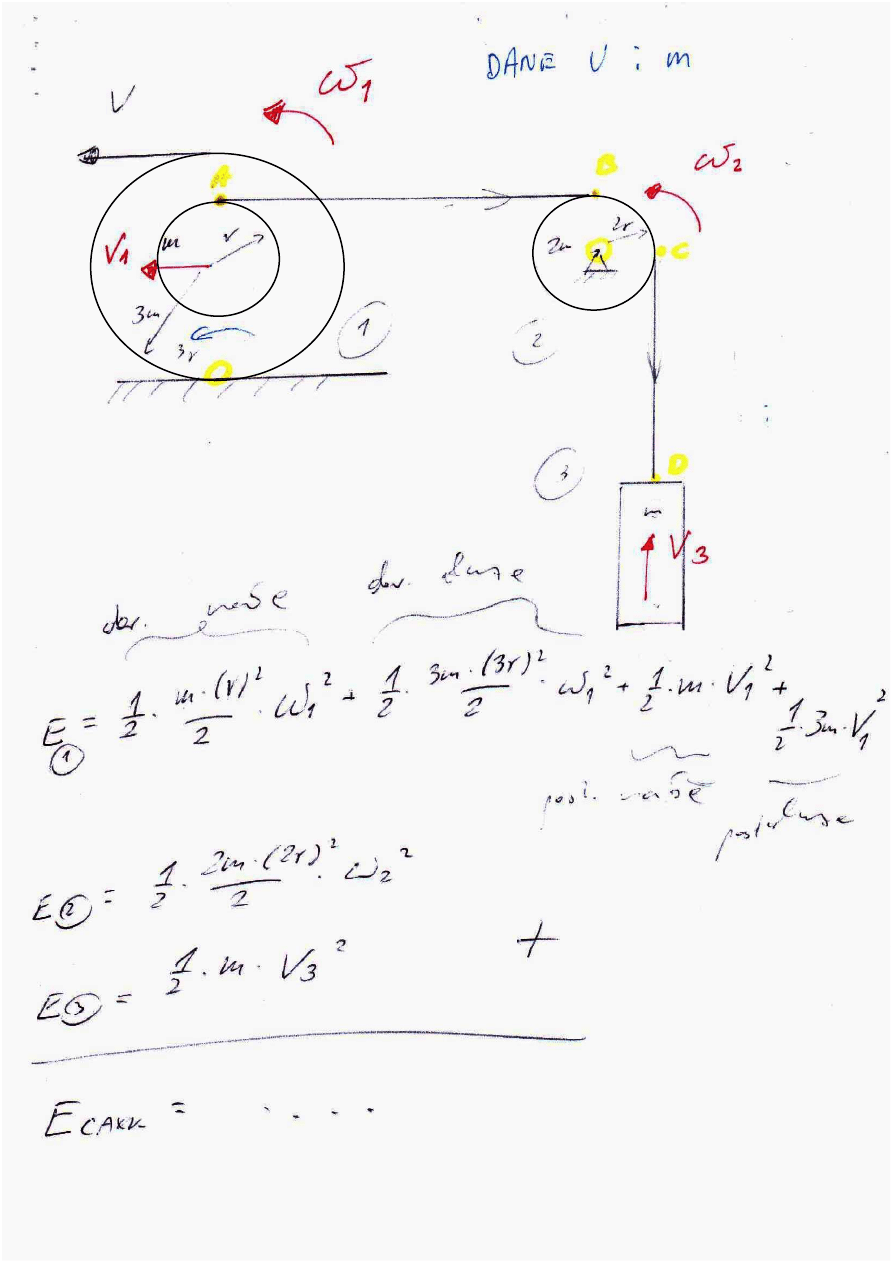 DANE V i m
V
ω₁
A
B
ω₂
V₁
m
r
2m
2r
C
3m
3r
1
2
3
D
m
V₃
obr. małe
obr. duże
E① = 1/2 · m·(r)²/2 · ω₁² + 1/2 · 3m·(3r)²/2 · ω₁² + 1/2 · m · V₁² + 1/2 · 3m · V₁²
post. małe
post. duże
E② = 1/2 · 2m·(2r)²/2 · ω₂²
E③ = 1/2 · m · V₃²
+
E CAŁK = . . . .